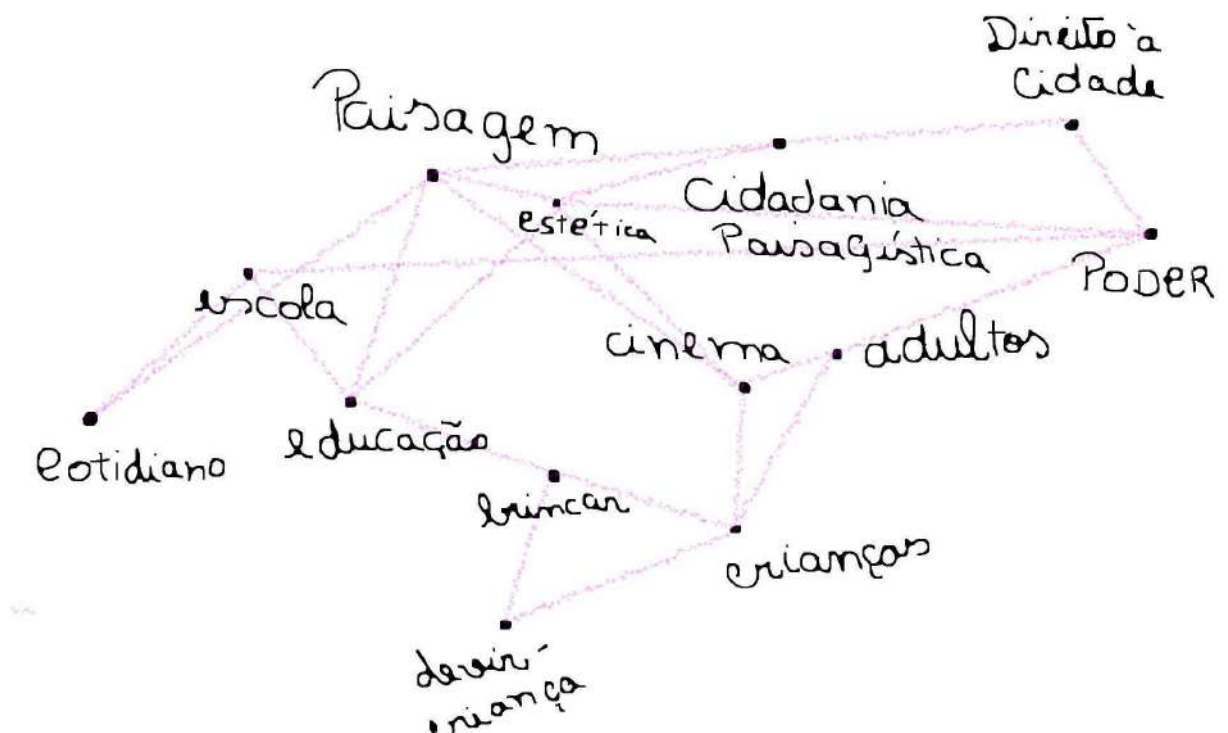 Direito à
Cidade
Paisagem
Cidadania
Paisagística
estética
PODER
escola
cinema
adultos
Cotidiano
educação
brincar
crianças
devir-
criança